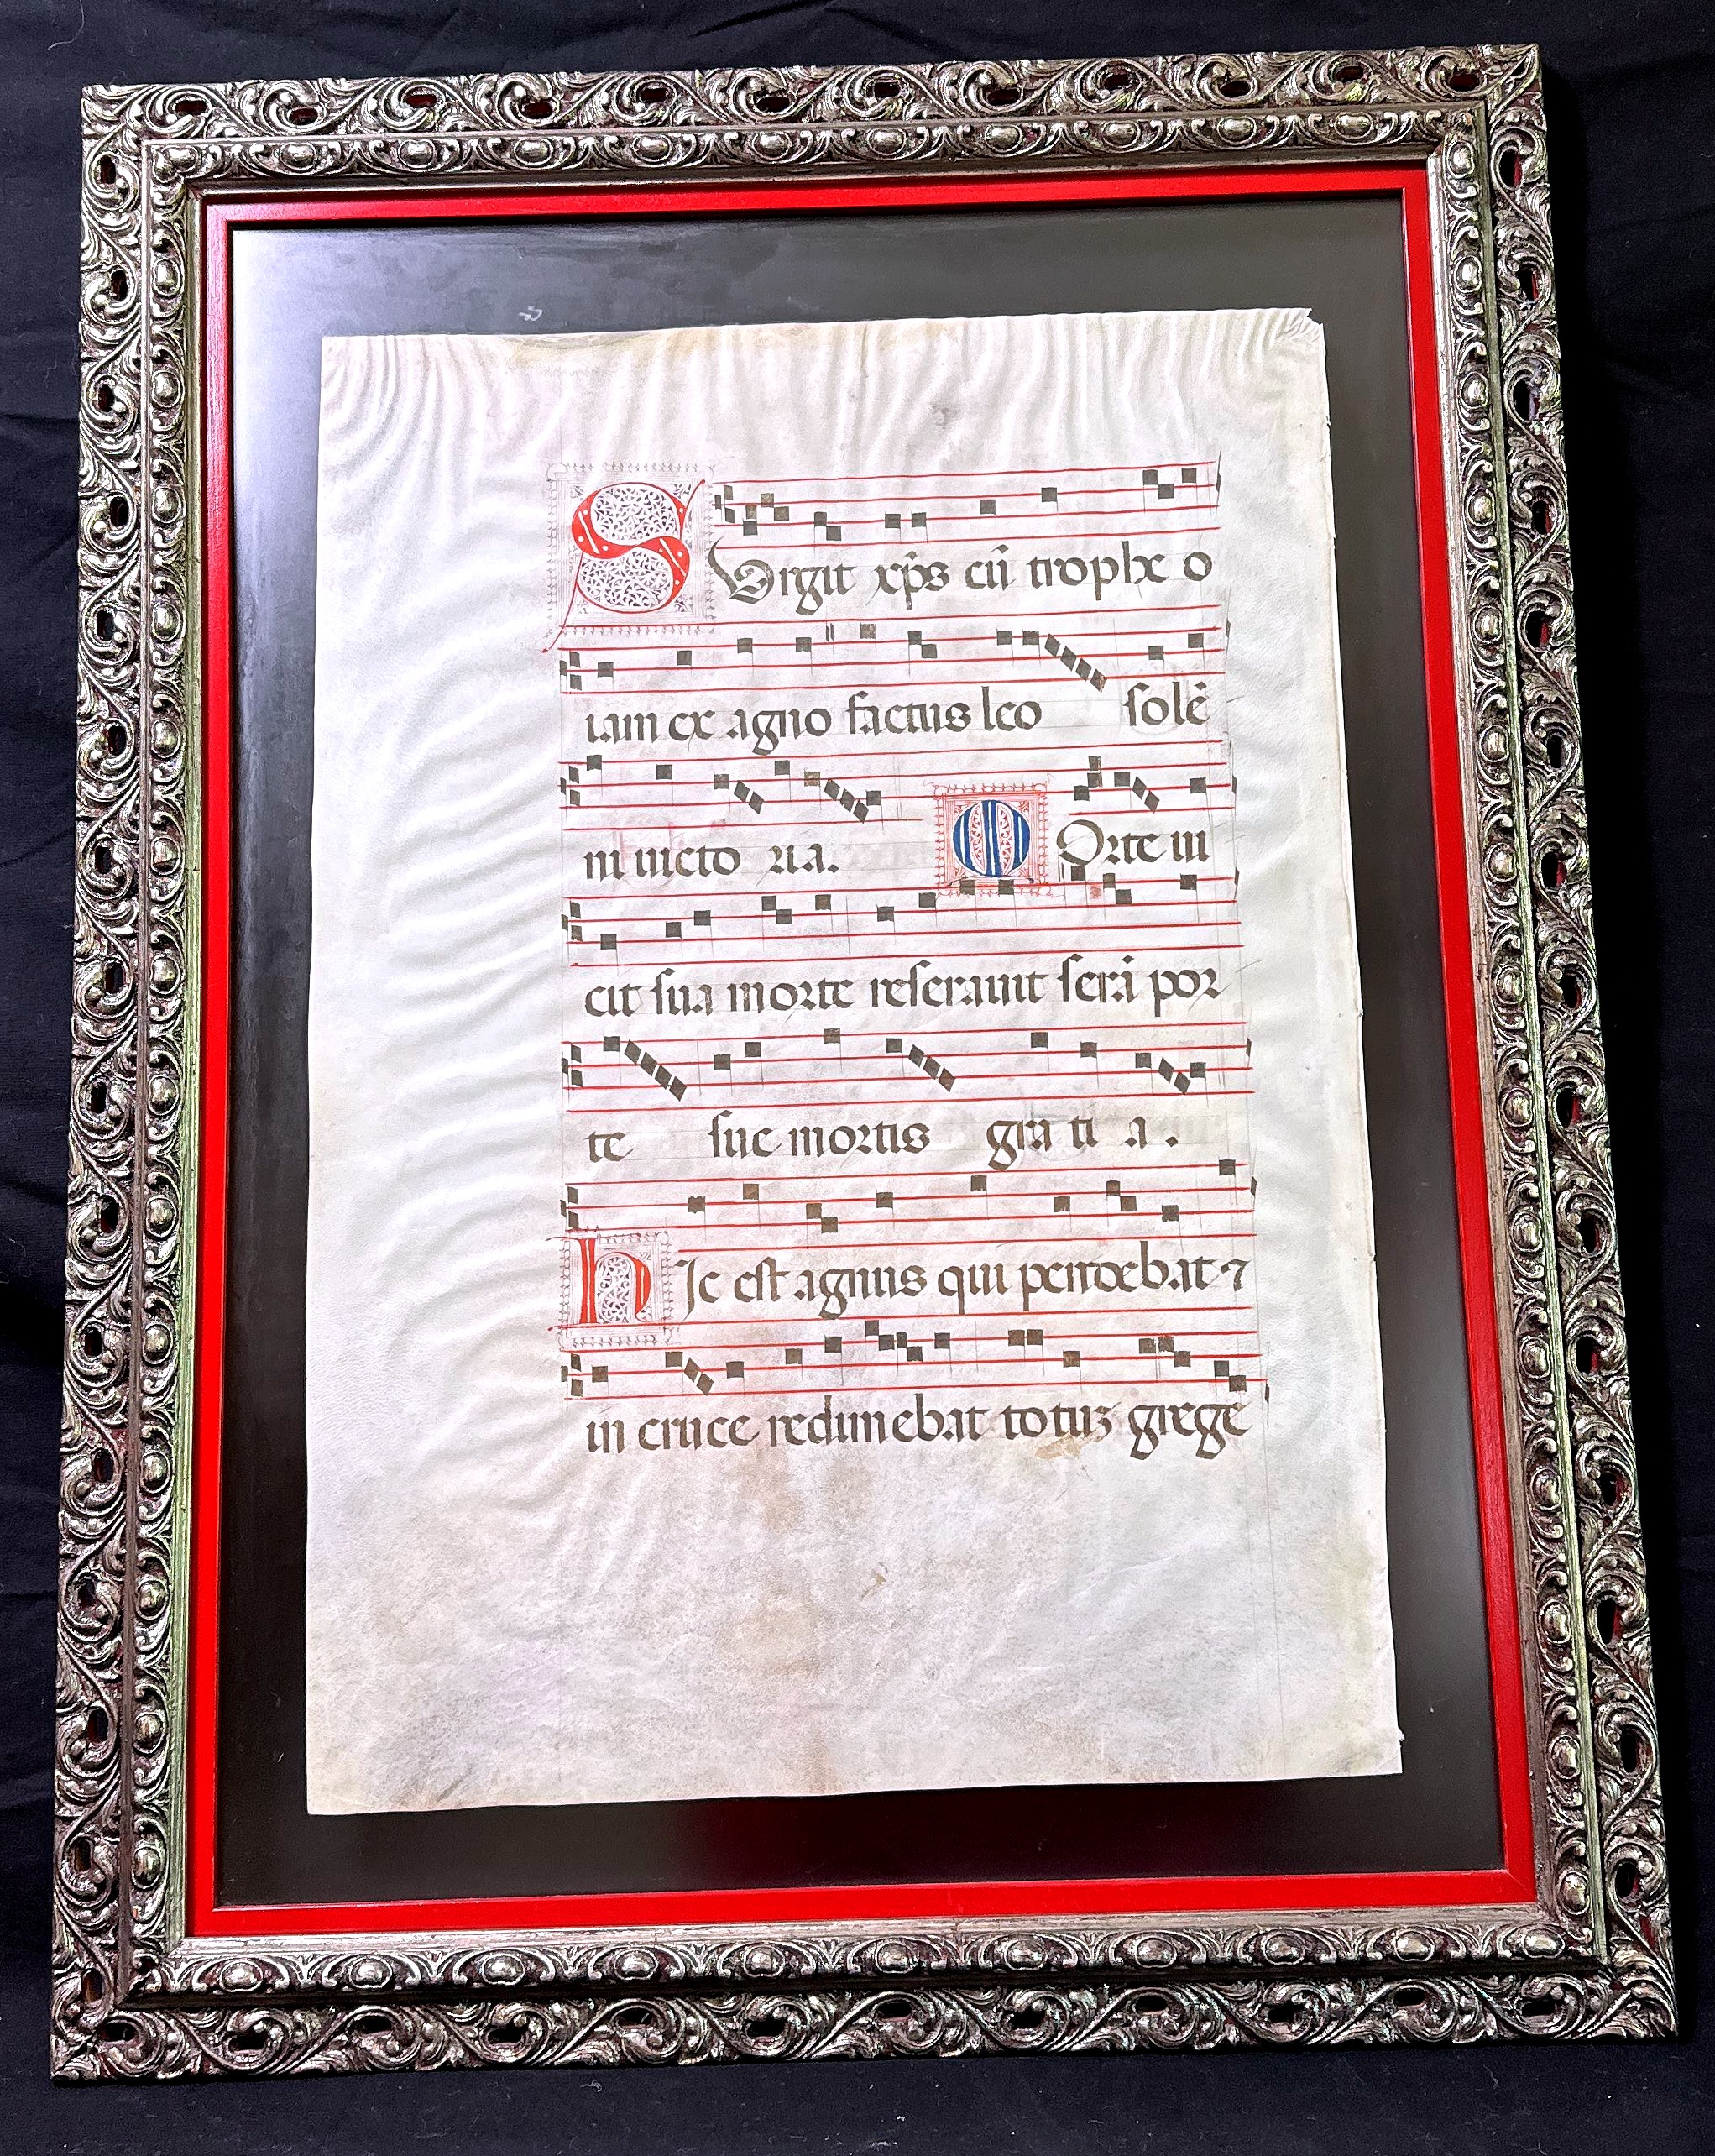 SVrgit xp̄s cū trophe o
iam ex agno factus leo solē
ni uicto ria.
MOrte ui
cit sua morte reserauit serā por
te sue mortis gra ti a.
hIc est agnus qui pendebat ⁊
in cruce redimebat totuʒ grege